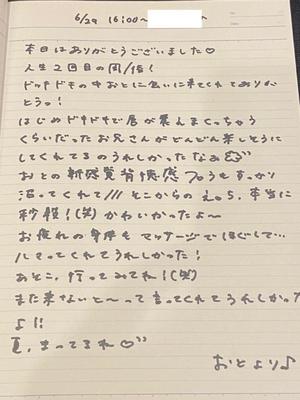 6/29 16:00〜
本日はありがとうございました♡
人生2回目の
ドキドキの中おとに会いに来てくれてありが
とうっ!
はじめドキドキで唇が震えまくっちゃう
くらいだったお兄さんがどんどん楽しそうに
してくれてるのうれしかったなぁ
おとの新感覚背快感
沼ってくれて/// そこからの 本当に
秒殺!(笑) かわいかったよ〜
お疲れの身体もマッサージでほぐして…
ハマってくれてうれしかった!
あそこ、行ってみてね!(笑)
また来ないと〜って言ってくれてうれしかった
よ!!
夏、まってるね♡
おとより♪